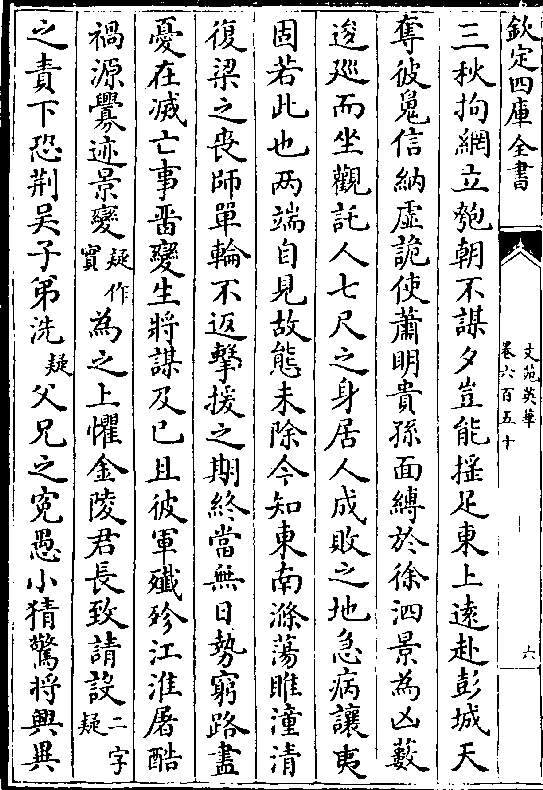 欽定四庫全書
文苑英華
卷六百五十
六
三秋拘網立匏朝不謀夕豈能揺足東上遠赴彭城天
奪彼鬼信納虛詭使蕭明貴孫面縛於徐泗景為凶藪
逡廵而坐觀託人七尺之身居人成敗之地急病讓夷
固若此也两端自見故態未除今知東南滌蕩睢潼清
復梁之喪師單輪不返擊援之期終當無日勢窮路盡
憂在滅亡事晋變生將謀及已且彼軍殲殄江淮屠酷
禍源釁迹景變疑作實為之上懼金陵君長致請設二字疑
之責下恐荆吴子弟洗疑父兄之寃愚小猜驚将興異